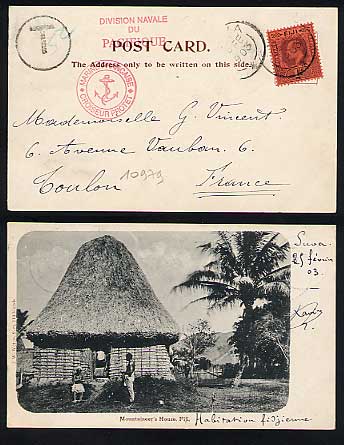 T
DIVISION NAVALE
DU
PACIFIQUE
POST CARD.
The Address only to be written on this side.
MARINE FRANÇAISE
CROISEUR PROTET
FIJI
Mademoiselle G. Vincent.
6. Avenue Vauban. 6.
Toulon
10979
France
Suva
25 février
03.
Mountaineer's House, Fiji.
Habitation fidjienne